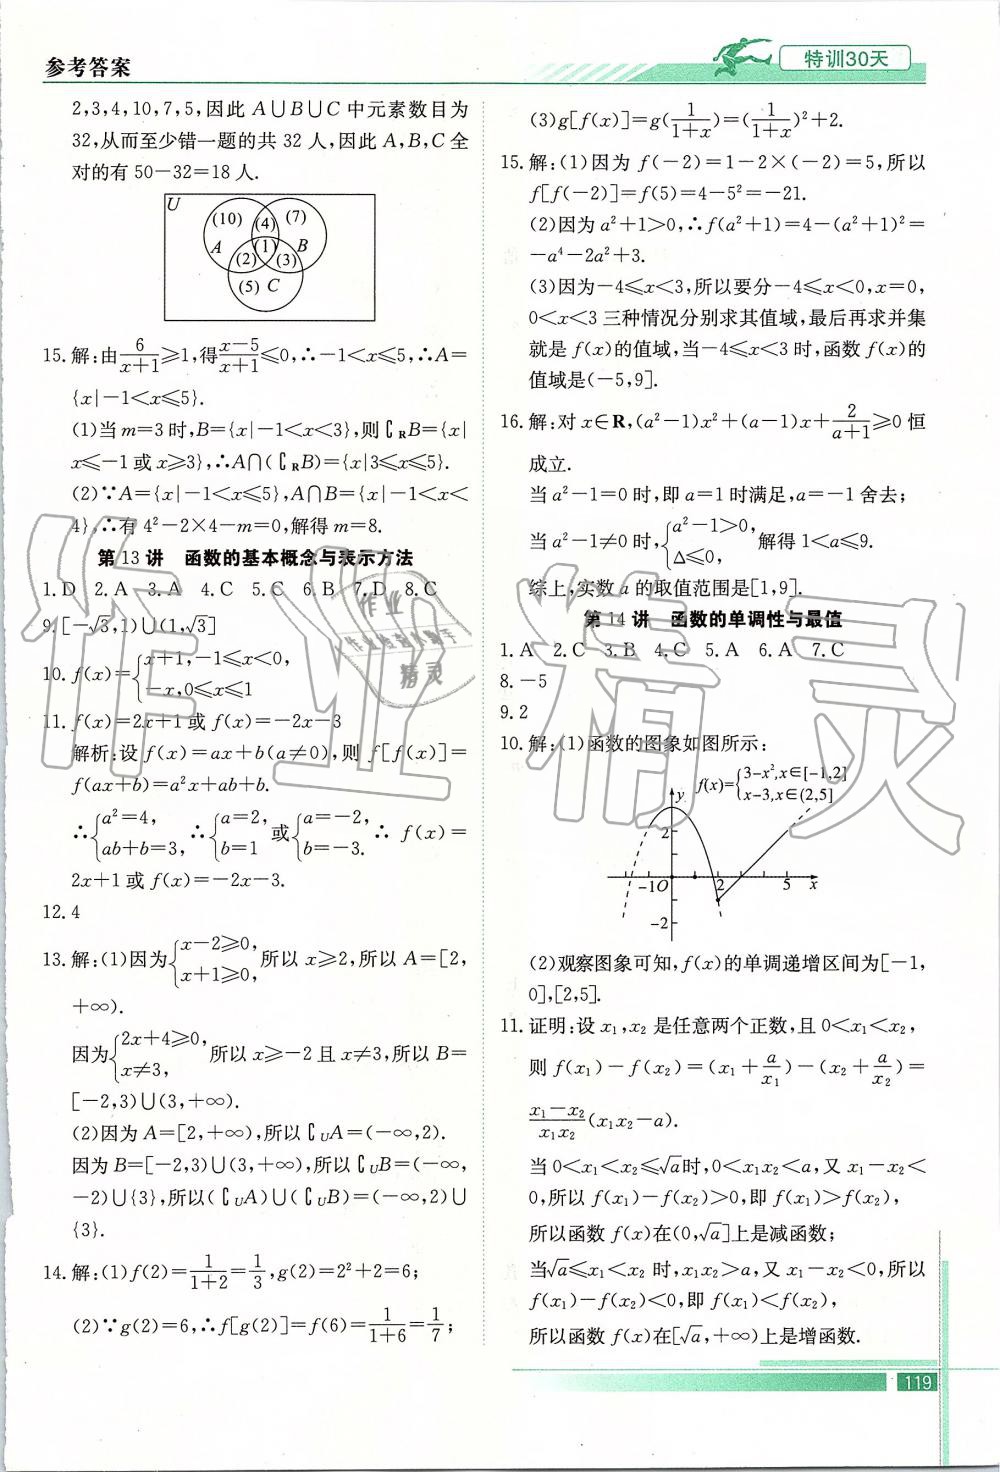 参考答案
特训30天
2,3,4,10,7,5,因此 A∪B∪C 中元素数目为
32,从而至少错一题的共 32 人,因此 A,B,C 全
对的有 50-32=18 人.
U
(10) (4) (7)
A (1) B
(2) (3)
(5) C
15.解:由6/(x+1)≥1,得(x-5)/(x+1)≤0,∴-1<x≤5,∴A=
{x|-1<x≤5}.
(1)当 m=3 时,B={x|-1<x<3},则∁RB={x|
x≤-1 或 x≥3},∴A∩(∁RB)={x|3≤x≤5}.
(2)∵A={x|-1<x≤5},A∩B={x|-1<x<
4},∴有 4²-2×4-m=0,解得 m=8.
第 13 讲 函数的基本概念与表示方法
1.D 2.A 3.A 4.C 5.C 6.B 7.D 8.C
9.[-√3,1)∪(1,√3]
10.f(x)={x+1,-1≤x<0,
-x,0≤x≤1
11.f(x)=2x+1 或 f(x)=-2x-3
解析:设 f(x)=ax+b(a≠0),则 f[f(x)]=
f(ax+b)=a²x+ab+b.
∴{a²=4, ab+b=3, ∴{a=2, b=1 或{a=-2, b=-3. ∴ f(x)=
2x+1 或 f(x)=-2x-3.
12.4
13.解:(1)因为{x-2≥0, x+1≥0, 所以 x≥2,所以 A=[2,
+∞).
因为{2x+4≥0, x≠3, 所以 x≥-2 且 x≠3,所以 B=
[-2,3)∪(3,+∞).
(2)因为 A=[2,+∞),所以∁UA=(-∞,2).
因为 B=[-2,3)∪(3,+∞),所以∁UB=(-∞,
-2)∪{3},所以(∁UA)∪(∁UB)=(-∞,2)∪
{3}.
14.解:(1)f(2)=1/(1+2)=1/3,g(2)=2²+2=6;
(2)∵g(2)=6,∴f[g(2)]=f(6)=1/(1+6)=1/7;
(3)g[f(x)]=g(1/(1+x))=(1/(1+x))²+2.
15.解:(1)因为 f(-2)=1-2×(-2)=5,所以
f[f(-2)]=f(5)=4-5²=-21.
(2)因为 a²+1>0,∴f(a²+1)=4-(a²+1)²=
-a⁴-2a²+3.
(3)因为-4≤x<3,所以要分-4≤x<0,x=0,
0<x<3 三种情况分别求其值域,最后再求并集
就是 f(x)的值域,当-4≤x<3 时,函数 f(x)的
值域是(-5,9].
16.解:对 x∈R,(a²-1)x²+(a-1)x+2/(a+1)≥0 恒
成立.
当 a²-1=0 时,即 a=1 时满足,a=-1 舍去;
当 a²-1≠0 时,{a²-1>0, Δ≤0, 解得 1<a≤9.
综上,实数 a 的取值范围是[1,9].
第 14 讲 函数的单调性与最值
1.A 2.C 3.B 4.C 5.A 6.A 7.C
8.-5
9.2
10.解:(1)函数的图象如图所示:
f(x)={3-x²,x∈[-1,2]
x-3,x∈(2,5]
y
2
-1 O 2 5 x
-2
(2)观察图象可知,f(x)的单调递增区间为[-1,
0],[2,5].
11.证明:设 x₁,x₂ 是任意两个正数,且 0<x₁<x₂,
则 f(x₁)-f(x₂)=(x₁+a/x₁)-(x₂+a/x₂)=
(x₁-x₂)/(x₁x₂)(x₁x₂-a).
当 0<x₁<x₂≤√a时,0<x₁x₂<a,又 x₁-x₂<
0,所以 f(x₁)-f(x₂)>0,即 f(x₁)>f(x₂),
所以函数 f(x)在(0,√a]上是减函数;
当√a≤x₁<x₂ 时,x₁x₂>a,又 x₁-x₂<0,所以
f(x₁)-f(x₂)<0,即 f(x₁)<f(x₂),
所以函数 f(x)在[√a,+∞)上是增函数.
119
作业精灵
作业
精灵